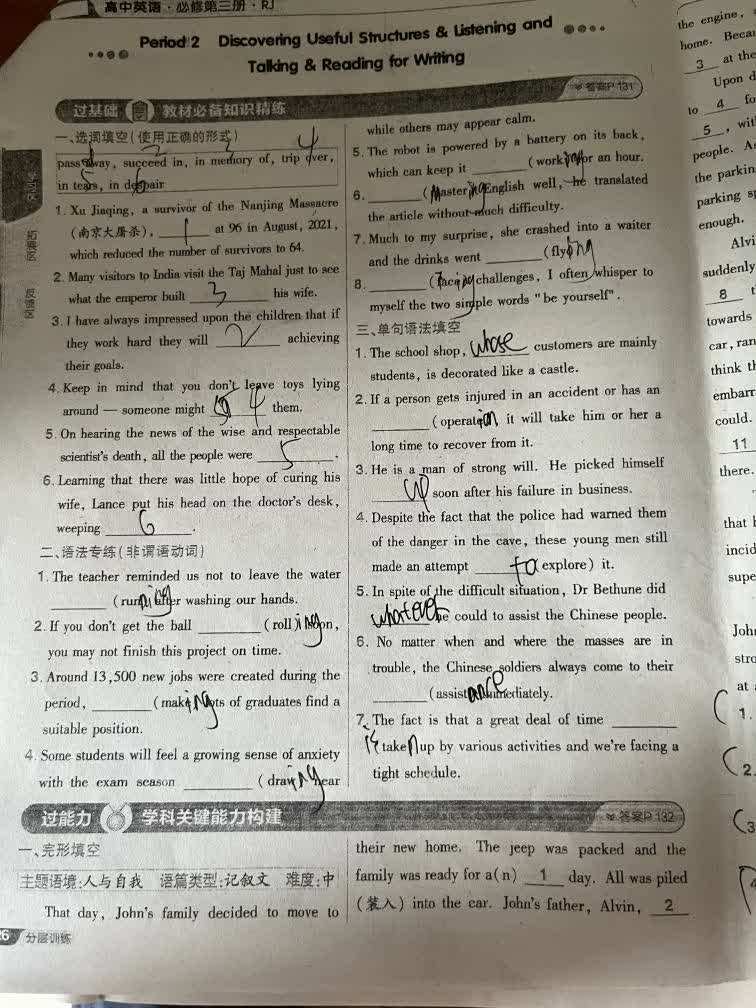 高中英语·必修第三册·RJ
Period 2 Discovering Useful Structures & Listening and
Talking & Reading for Writing
过基础 教材必备知识精练
答案P 131
一、选词填空(使用正确的形式)
1 2 3 4
pass away, succeed in, in memory of, trip over,
5 6
in tears, in despair
1. Xu Jiaqing, a survivor of the Nanjing Massacre
(南京大屠杀), 1 at 96 in August, 2021,
which reduced the number of survivors to 64.
2. Many visitors to India visit the Taj Mahal just to see
what the emperor built 3 his wife.
3. I have always impressed upon the children that if
they work hard they will 2 achieving
their goals.
4. Keep in mind that you don't leave toys lying
around — someone might 4 them.
5. On hearing the news of the wise and respectable
scientist's death, all the people were 5 .
6. Learning that there was little hope of curing his
wife, Lance put his head on the doctor's desk,
weeping 6 .
二、语法专练(非谓语动词)
1. The teacher reminded us not to leave the water
(running after washing our hands.
2. If you don't get the ball (rolling soon,
you may not finish this project on time.
3. Around 13,500 new jobs were created during the
period, (making lots of graduates find a
suitable position.
4. Some students will feel a growing sense of anxiety
with the exam season (drawing near
while others may appear calm.
5. The robot is powered by a battery on its back,
which can keep it (working for an hour.
6. (Mastering English well, he translated
the article without much difficulty.
7. Much to my surprise, she crashed into a waiter
and the drinks went (flying
8. (Facing challenges, I often whisper to
myself the two simple words "be yourself".
三、单句语法填空
1. The school shop, whose customers are mainly
students, is decorated like a castle.
2. If a person gets injured in an accident or has an
(operation it will take him or her a
long time to recover from it.
3. He is a man of strong will. He picked himself
up soon after his failure in business.
4. Despite the fact that the police had warned them
of the danger in the cave, these young men still
made an attempt to (explore) it.
5. In spite of the difficult situation, Dr Bethune did
whatever he could to assist the Chinese people.
6. No matter when and where the masses are in
trouble, the Chinese soldiers always come to their
(assistance immediately.
7. The fact is that a great deal of time
is taken up by various activities and we're facing a
tight schedule.
过能力 学科关键能力构建
答案P 132
一、完形填空
主题语境:人与自我 语篇类型:记叙文 难度:中
That day, John's family decided to move to
their new home. The jeep was packed and the
family was ready for a(n) 1 day. All was piled
(装入) into the car. John's father, Alvin, 2
26 分层训练
the engine,
home. Becau
3 at the
Upon d
to 4 fo
5 , wit
people. As
the parkin
parking sp
enough.
Alvi
suddenly
8 t
towards
car, ran
think th
embarr
could.
11
there.
that h
incid
supe
John
stro
at
( 1.
( 2.
( 3